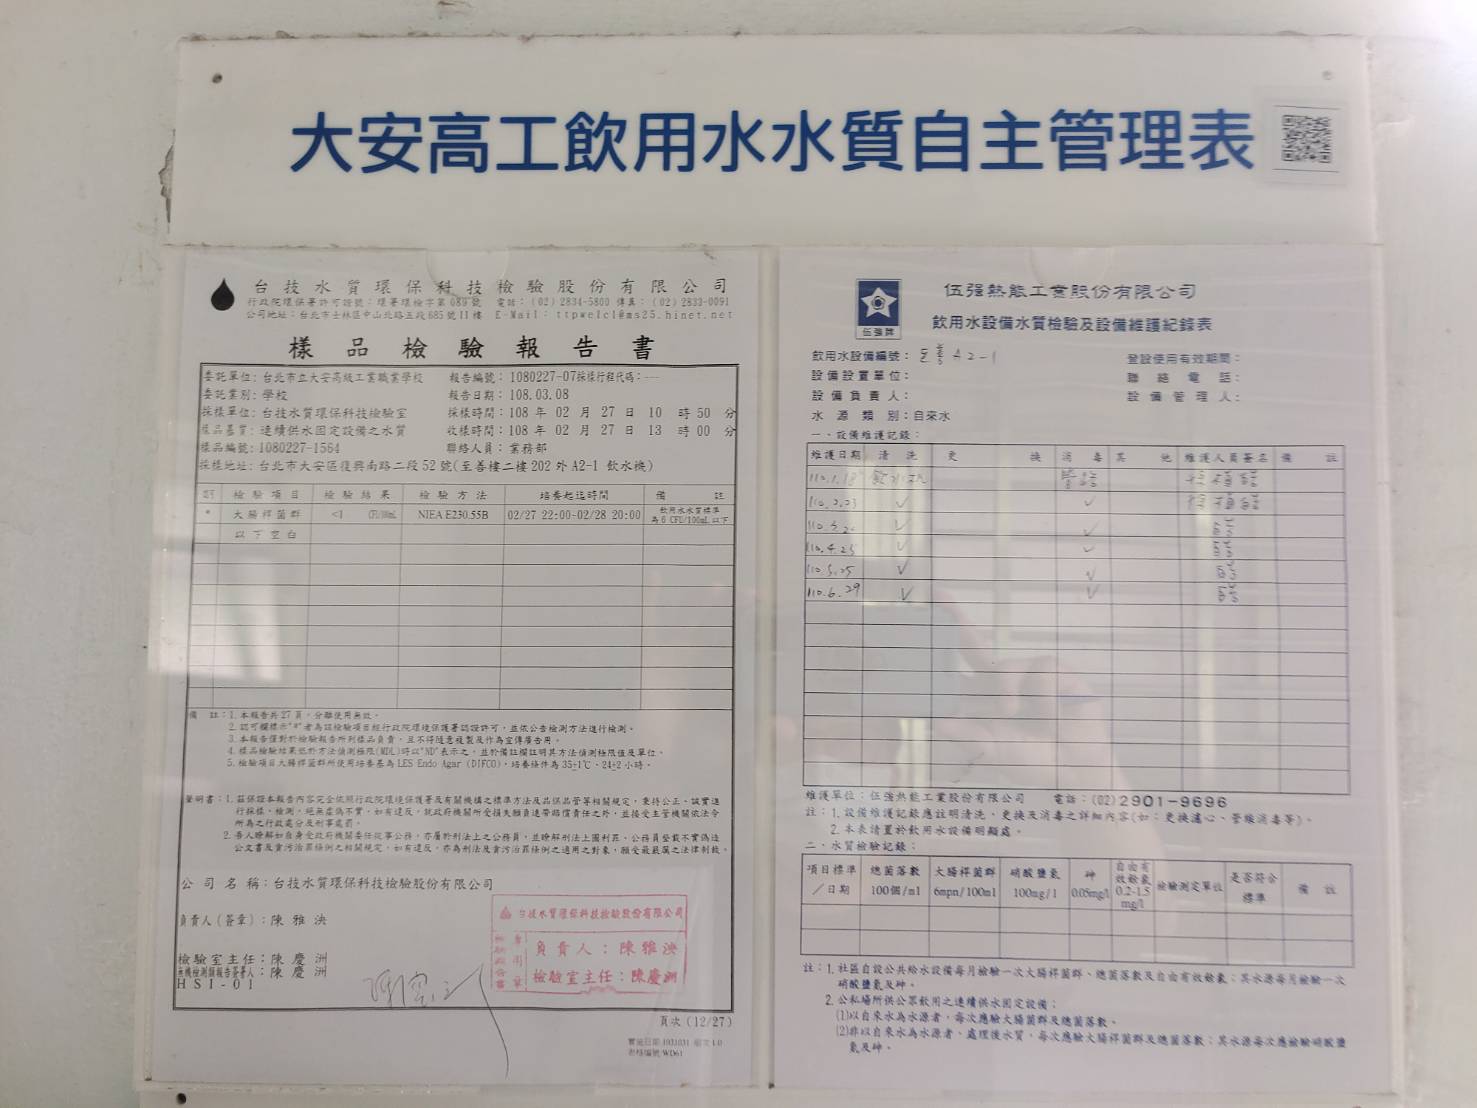 大安高工飲用水水質自主管理表
台技水質環保科技檢驗股份有限公司
行政院環保署許可證號：環署環檢字第089號 電話：(02) 2834-5800 傳真：(02) 2833-0091
公司地址：台北市士林區中山北路五段685號11樓 E-Mail： ttpwelcl@ms25.hinet.net
樣品檢驗報告書
委託單位：台北市立大安高級工業職業學校 報告編號：1080227-07採樣行程代碼：---
委託業別：學校 報告日期：108.03.08
採樣單位：台技水質環保科技檢驗室 採樣時間：108 年 02 月 27 日 10 時 50 分
樣品基質：連續供水固定設備之水質 收樣時間：108 年 02 月 27 日 13 時 00 分
樣品編號：1080227-1564 聯絡人員：業務部
採樣地址：台北市大安區復興南路二段52號(至善樓二樓202外A2-1 飲水機)
檢驗項目 檢驗結果 檢驗方法 培養起迄時間 備註
* 大腸桿菌群 <1 CFU/100mL NIEA E230.55B 02/27 22:00-02/28 20:00 飲用水水質標準
為6 CFU/100mL以下
以下空白
備註：1.本報告共27頁，分離使用無效。
2.認可欄標示"*"者為該檢驗項目經行政院環境保護署認證許可，並依公告檢測方法進行檢測。
3.本報告僅對於檢驗報告所列樣品負責，且不得隨意複製及作為宣傳廣告用。
4.樣品檢驗結果低於方法偵測極限(MDL)時以"ND"表示之，並於備註欄註明其方法偵測極限值及單位。
5.檢驗項目大腸桿菌群所使用培養基為LES Endo Agar (DIFCO)，培養條件為35±1℃、24±2小時。
聲明書：1.茲保證本報告內容完全依照行政院環境保護署及有關機構之標準方法及品保品管等相關規定，秉持公正、誠實進
行採樣、檢測，絕無虛偽不實，如有違反，就政府機關所受損失願負連帶賠償責任之外，並接受主管機關依法令
所為之行政處分及刑事處罰。
2.吾人瞭解如自身受政府機關委任從事公務，亦屬於刑法上之公務員，並瞭解刑法上圖利罪、公務員登載不實偽造
公文書及貪污治罪條例之相關規定，如有違反，亦為刑法及貪污治罪條例之適用之對象，願受最嚴厲之法律制裁。
公司名稱：台技水質環保科技檢驗股份有限公司
負責人(簽章)：陳雅泱
檢驗室主任：陳慶洲
無機檢測類報告簽署人：陳慶洲
HSI-01
台技水質環保科技檢驗股份有限公司
負責人：陳雅泱
檢驗室主任：陳慶洲
頁次 (12/27)
伍強牌
伍強熱能工業股份有限公司
飲用水設備水質檢驗及設備維護紀錄表
飲用水設備編號： 至善A2-1 登設使用有效期間：
設備設置單位： 聯絡電話：
設備負責人： 設備管理人：
水源類別：自來水
一、設備維護記錄：
維護日期 清洗 更換 消毒 其他 維護人員簽名 備註
110.1.18
110.2.23 ✓ ✓
110.3.2 ✓ ✓
110.4.25 ✓ ✓
110.5.25 ✓ ✓
110.6.29 ✓ ✓
維護單位：伍強熱能工業股份有限公司 電話：(02)2901-9696
註：1.設備維護記錄應註明清洗、更換及消毒之詳細內容(如：更換濾心、管線消毒等)。
2.本表請置於飲用水設備明顯處。
二、水質檢驗記錄：
項目標準／日期 總菌落數 100個/ml 大腸桿菌群 6mpn/100ml 硝酸鹽氮 100mg/l 砷 0.05mg/l 自由有效餘氯 0.2-1.5 mg/l 檢驗測定單位 是否符合標準 備註
註：1.社區自設公共給水設備每月檢驗一次大腸桿菌群、總菌落數及自由有效餘氯；其水源每月檢驗一次
硝酸鹽氮及砷。
2.公私場所供公眾飲用之連續供水固定設備：
(1)以自來水為水源者，每次應驗大腸菌群及總菌落數。
(2)非以自來水為水源者，處理後水質，每次應驗大腸桿菌群及總菌落數；其水源每次應檢驗硝酸鹽
氮及砷。